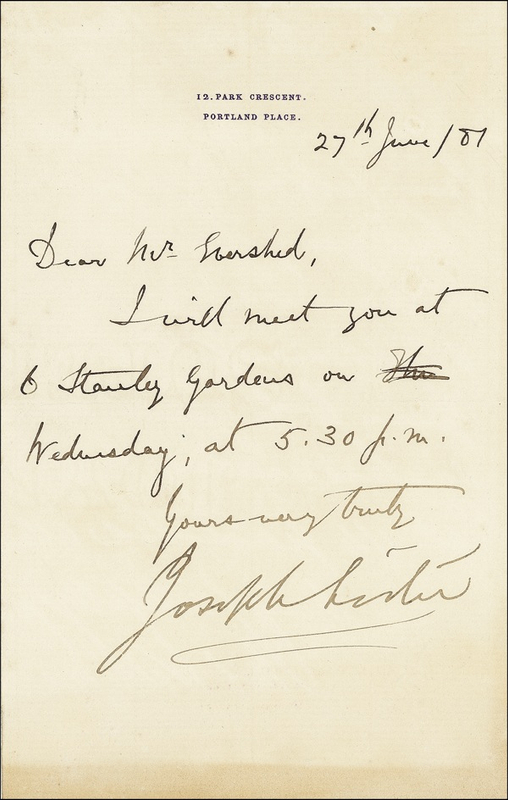 12. PARK CRESCENT.
PORTLAND PLACE.
27th June / 81
Dear Mr. Evershed,
I will meet you at
6 Stanley Gardens on
Wednesday, at 5.30 p.m.
Yours very truly
Joseph Lister